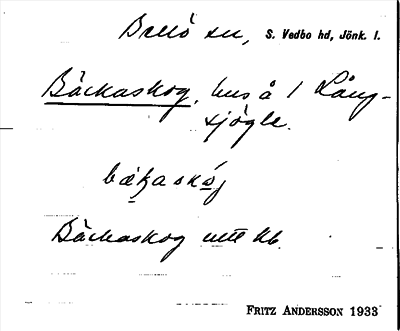 Bellö sn, S. Vedbo hd, Jönk. l.
Bäckaskog, hus å 1 Lång-
sjögle.
Bäckaskog
FRITZ ANDERSSON 1933